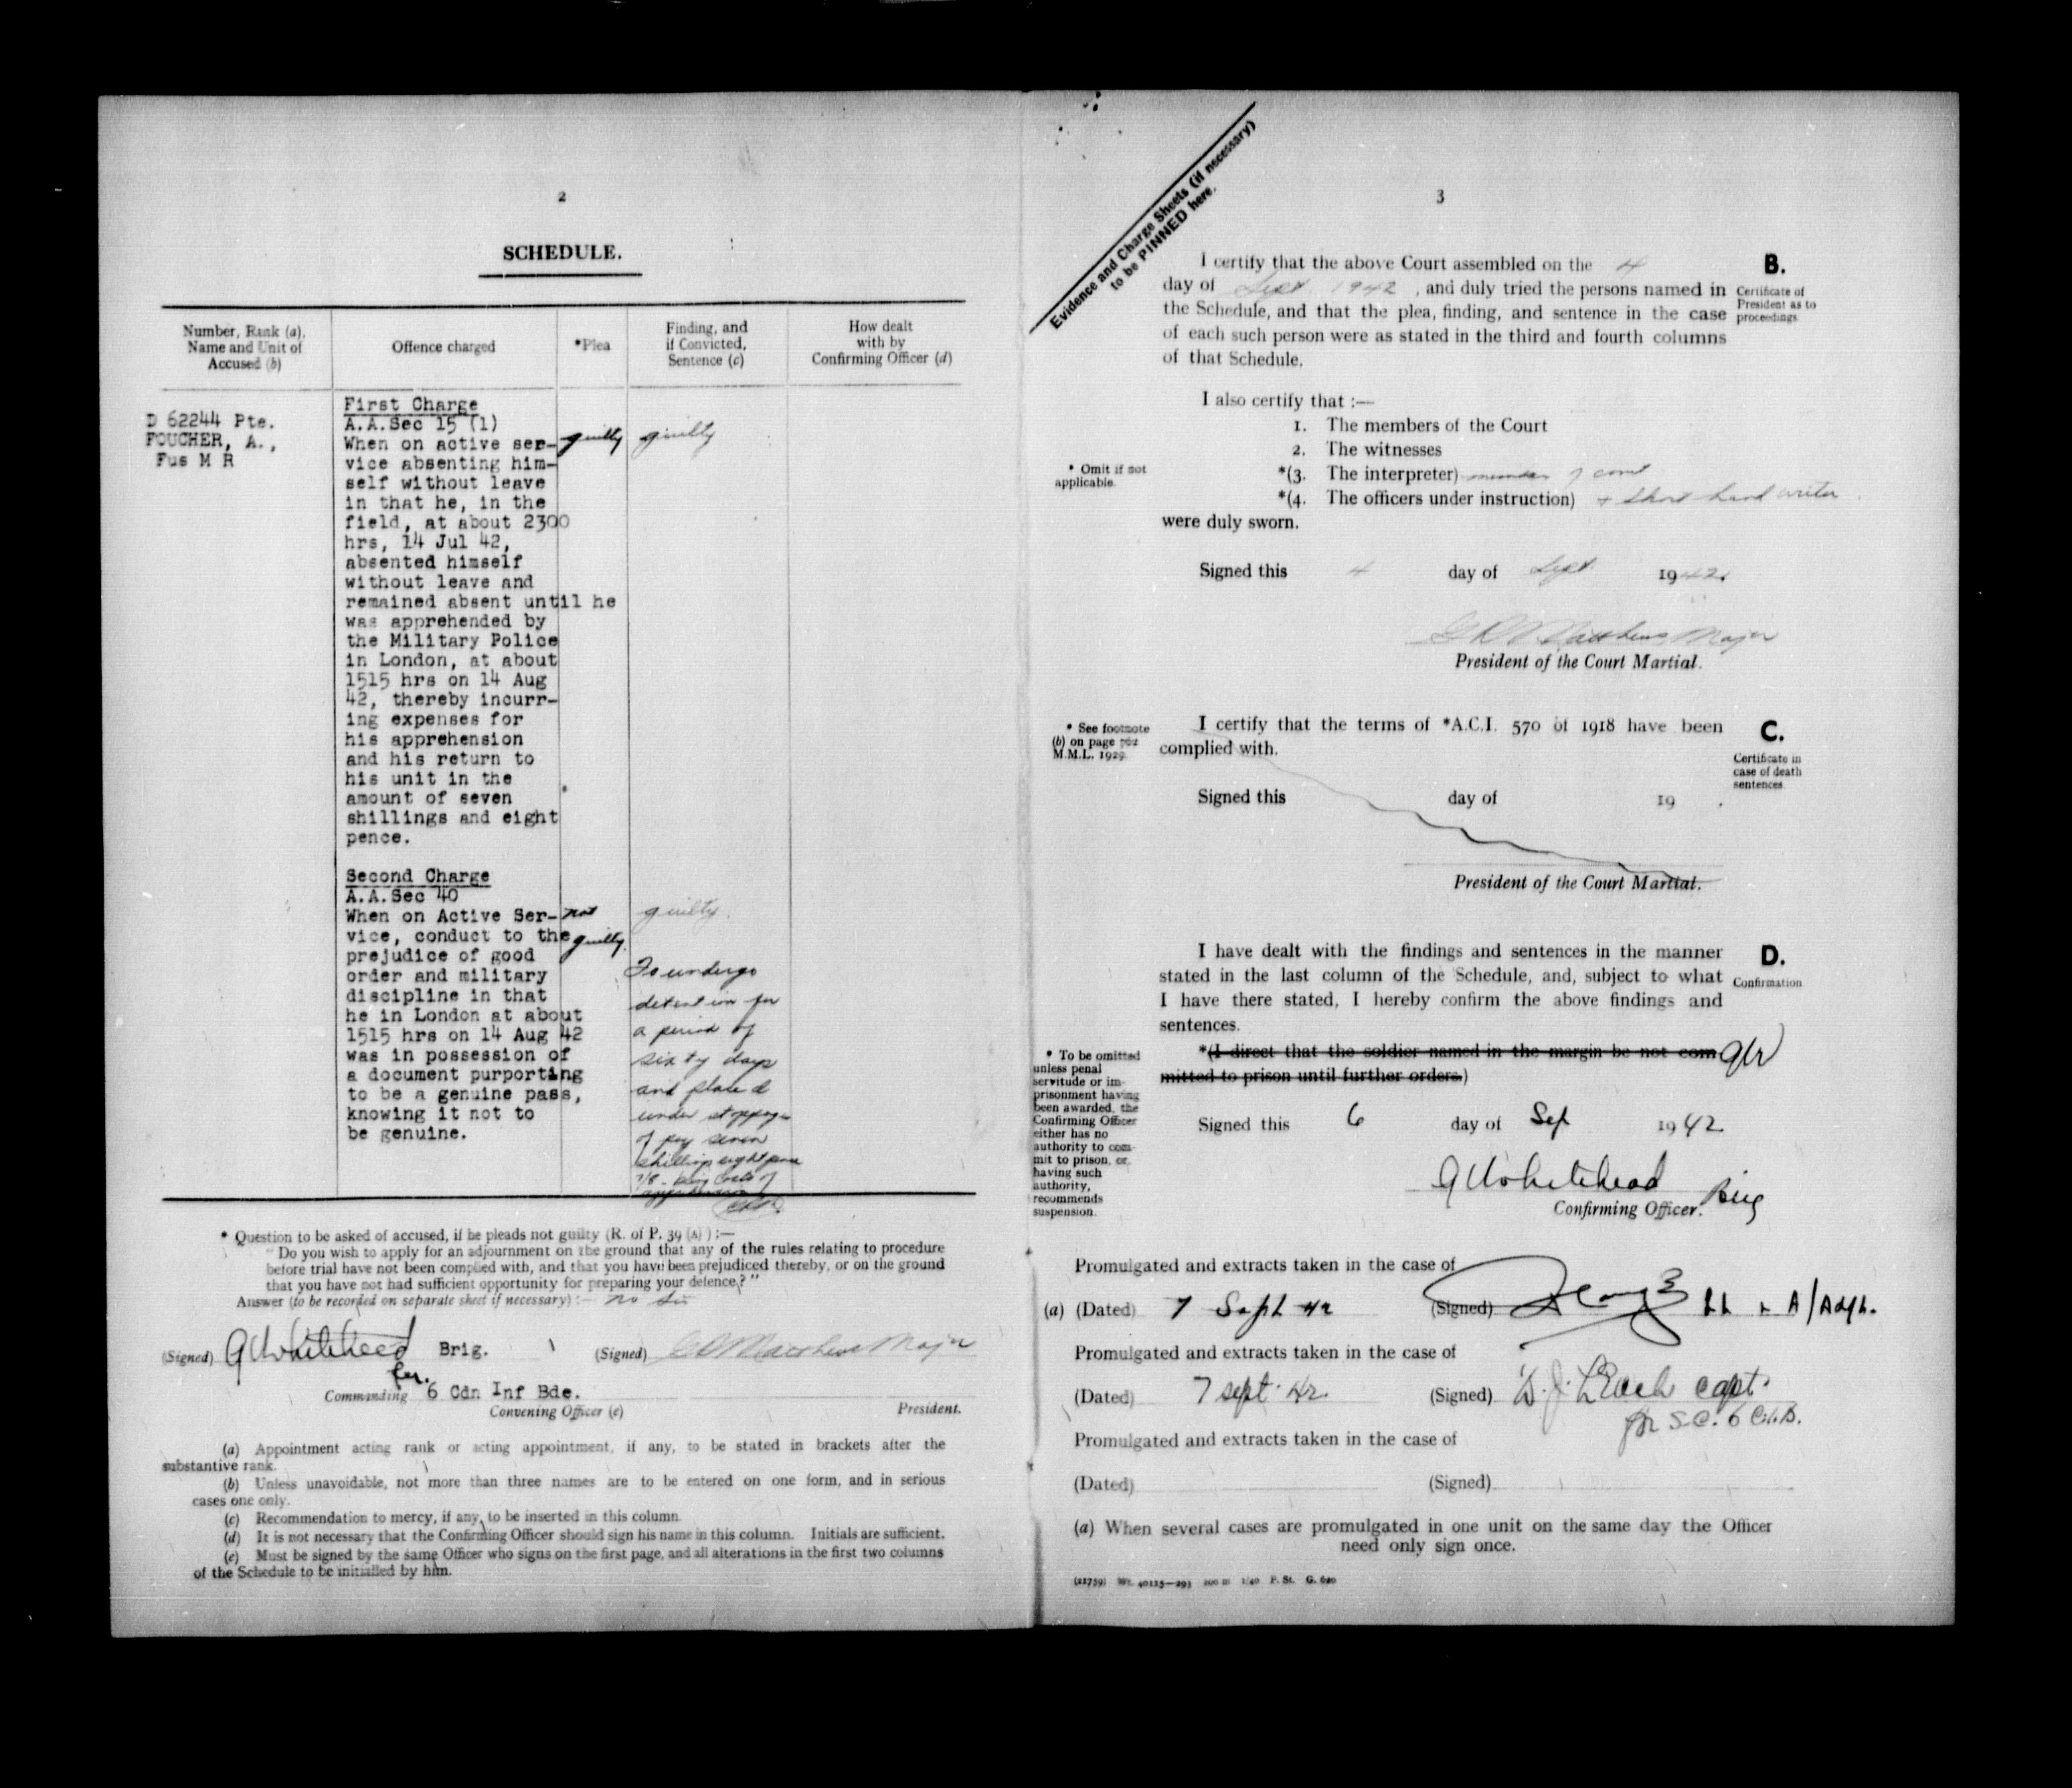 2
SCHEDULE.
Number, Rank (a),
Name and Unit of
Accused (b)
Offence charged
*Plea
Finding, and
if Convicted,
Sentence (c)
How dealt
with by
Confirming Officer (d)
D 62244 Pte.
FOUCHER, A.,
Fus M R
First Charge
A.A.Sec 15 (1)
When on active ser-
vice absenting him-
self without leave
in that he, in the
field, at about 2300
hrs, 14 Jul 42,
absented himself
without leave and
remained absent until he
was apprehended by
the Military Police
in London, at about
1515 hrs on 14 Aug
42, thereby incurr-
ing expenses for
his apprehension
and his return to
his unit in the
amount of seven
shillings and eight
pence.
guilty
guilty
Second Charge
A.A.Sec 40
When on Active Ser-
vice, conduct to the
prejudice of good
order and military
discipline in that
he in London at about
1515 hrs on 14 Aug 42
was in possession of
a document purporting
to be a genuine pass,
knowing it not to
be genuine.
not
guilty.
guilty.
To undergo
detention for
a period of
sixty days
and placed
under stoppage
of pay seven
shillings eight pence
7/8 - being costs of
apprehension
* Question to be asked of accused, if he pleads not guilty (R. of P. 39 (A) ) :—
"Do you wish to apply for an adjournment on the ground that any of the rules relating to procedure
before trial have not been complied with, and that you have been prejudiced thereby, or on the ground
that you have not had sufficient opportunity for preparing your defence?"
Answer (to be recorded on separate sheet if necessary) :— no sir
(Signed) G Whitehead Brig.
(Signed) Matthews Major
Commanding 6 Cdn Inf Bde.
Convening Officer (e)
President.
(a) Appointment acting rank or acting appointment, if any, to be stated in brackets after the
substantive rank.
(b) Unless unavoidable, not more than three names are to be entered on one form, and in serious
cases one only.
(c) Recommendation to mercy, if any, to be inserted in this column.
(d) It is not necessary that the Confirming Officer should sign his name in this column. Initials are sufficient.
(e) Must be signed by the same Officer who signs on the first page, and all alterations in the first two columns
of the Schedule to be initialled by him.
Evidence and Charge Sheets (if necessary)
to be PINNED here.
3
I certify that the above Court assembled on the 4
day of Sept 1942, and duly tried the persons named in
the Schedule, and that the plea, finding, and sentence in the case
of each such person were as stated in the third and fourth columns
of that Schedule.
B.
Certificate of
President as to
proceedings.
I also certify that :—
1. The members of the Court
2. The witnesses
*(3. The interpreter) member of court
*(4. The officers under instruction) + short hand writer
were duly sworn.
* Omit if not
applicable.
Signed this 4 day of Sept 1942.
Matthews Major
President of the Court Martial.
* See footnote
(b) on page 762
M.M.L. 1929.
I certify that the terms of *A.C.I. 570 of 1918 have been
complied with.
C.
Certificate in
case of death
sentences.
Signed this day of 19 .
President of the Court Martial.
I have dealt with the findings and sentences in the manner
stated in the last column of the Schedule, and, subject to what
I have there stated, I hereby confirm the above findings and
sentences.
D.
Confirmation
*(I direct that the soldier named in the margin be not com-
mitted to prison until further orders.)
* To be omitted
unless penal
servitude or im-
prisonment having
been awarded, the
Confirming Officer
either has no
authority to com-
mit to prison, or
having such
authority,
recommends
suspension.
Signed this 6 day of Sep 1942
G Whitehead Brig
Confirming Officer.
Promulgated and extracts taken in the case of
(a) (Dated) 7 Sept 42 (Signed) Lt A/Adjt.
Promulgated and extracts taken in the case of
(Dated) 7 sept. 42. (Signed) capt.
for S.C. 6 C.I.B.
Promulgated and extracts taken in the case of
(Dated) (Signed)
(a) When several cases are promulgated in one unit on the same day the Officer
need only sign once.
(21759) Wt. 40115—293 200 m 1/40 P. St. G. 620